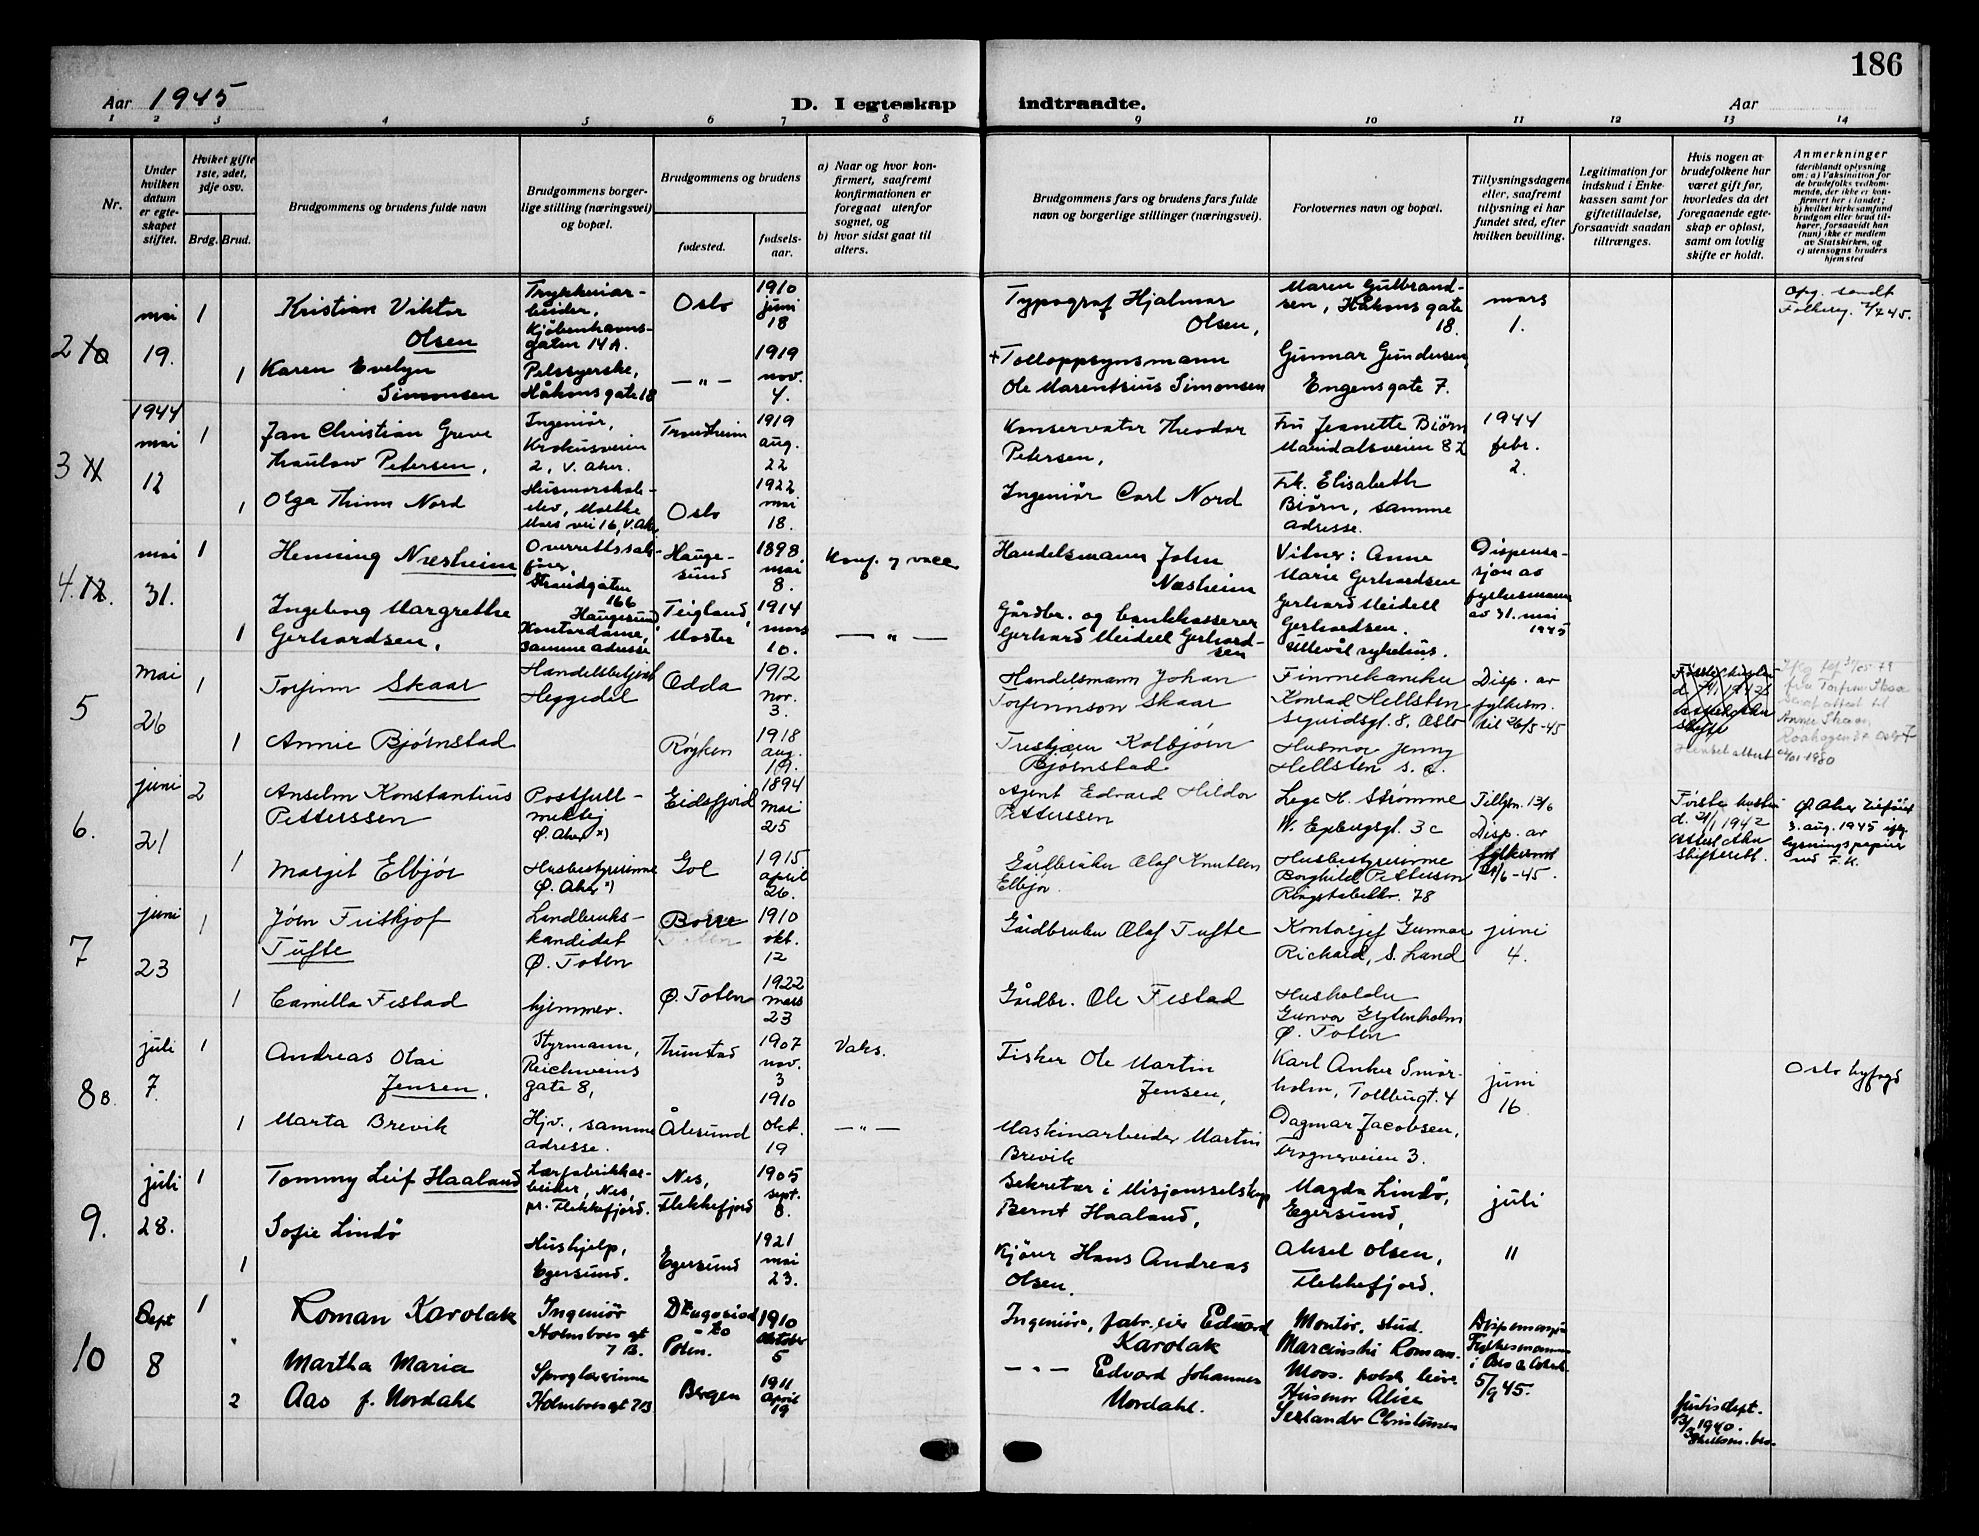 186
Aar 1945
D. I egteskap indtraadte.
Aar
1 2 3 4 5 6 7 8 9 10 11 12 13 14
Nr.
Under
hvilken
datum
er egte-
skapet
stiftet.
Hviket gifte
1ste, 2det,
3dje osv.
Brdg. Brud.
Brudgommens og brudens fulde navn
Brudgommens borger-
lige stilling (næringsvei)
og bopæl.
Brudgommens og brudens
fødested.
fødsels-
aar.
a) Naar og hvor kon-
firmert, saafremt
konfirmationen er
foregaat utenfor
sognet, og
b) hvor sidst gaat til
alters.
Brudgommens fars og brudens fars fulde
navn og borgerlige stillinger (næringsvei).
Forlovernes navn og bopæl.
Tillysningsdagene
eller, saafremt
tillysning ei har
fundet sted, efter
hvilken bevilling.
Legitimation for
indskud i Enke-
kassen samt for
giftetilladelse,
forsaavidt saadan
tiltrænges.
Hvis nogen av
brudefolkene har
været gift før,
hvorledes da det
foregaaende egte-
skap er opløst,
samt om lovlig
skifte er holdt.
Anmerkninger
(deriblandt oplysning
om: a) Vaksination for
de brudefolks vedkom-
mende, der ikke er kon-
firmert her i landet;
b) hvilket kirkesamfund
brudgom eller brud til-
hører, forsaavidt han
(hun) ikke er medlem
av Statskirken, og
c) utensogns bruders
hjemsted
2 10
mai
19.
1
Kristian Viktor
Olsen
Trykkeriar-
beider,
Kjøbenhavns-
gaten 14A.
Oslo
1910
juni
18
Typograf Hjalmar
Olsen,
Maren Gulbrand-
sen, Håkons gate
18.
mars
1.
Opg. sendt
1
Karen Evelyn
Simonsen
Pelssyerske,
Håkons gate 18
— " —
1919
nov.
4.
+ Tolloppsynsmann
Ole Marentsius Simonsen
Gunnar Gundersen,
Engensgate 7.
3 11
1944
mai
12
1
Jan Christian Greve
Thaulow Petersen,
Ingeniør,
Krokusveien
2, V. Aker.
Trondheim
1919
aug.
22
Konservator Theodor
Petersen,
Fru Jeanette Biørn
Maridalsveien 82
1944
febr.
2.
1
Olga Thinn Nord
Husmorskole-
elev, Moltke
Moes vei 16, V. Aker
Oslo
1922
mai
18.
Ingeniør Carl Nord
Frk. Elisabeth
Biørn, samme
adresse.
4. 12.
mai
31.
1
Henning Næsheim
Overrettssak-
fører,
Strandgaten
166
Haugesund
Hauge-
sund
1898
mai
8.
Konf. og vacc
Handelsmann John
Næsheim
Vitner: Anne
Marie Gerhardsen
Dispensa-
sjon av
fylkesmann
av 31. mai
1945
1
Ingeborg Margrethe
Gerhardsen,
Kontordame,
samme adresse
Teigland,
Moster
1914
mars
10.
— " —
Gårdbr. og bankkasserer
Gerhard Meidell Gerhard-
sen
Gerhard Meidell
Gerhardsen.
Ullevål sykehus.
5
mai
26
1
Torfinn Skaar
Handelsbetjent
Heggedal
Odda
1912
nov.
3.
Handelsmann Johan
Torfinnson Skaar
Konrad Hellsten
Disp. av
fylkesm.
til 26/5-45
1
Annie Bjørnstad
Røyken
1918
aug.
19.
Kolbjørn
Bjørnstad
Husmor Jenny
Hellsten s. a.
6.
juni
21
2
Anselm Konstantius
Petterssen
Postfull-
mektig
Ø. Aker *)
Eidsfjord
1894
mai
25
Agent Edvard Hildor
Pettersen
Lege H. Strømme
3c
Tillysn. 13/6
Disp. av
fylkesm
21/6-45.
Første hustru
d. 21/1 1942
Attest Aker
skifterett.
3. aug. 1945
lysningspapir
1
Margit Elbjør
Husbestyrerinne
Ø. Aker *)
Gol
1915
april
26.
Gårdbruker Olaf Knutsen
Elbjør.
Husbestyrerinne
Borghild Pettersen
78
7
juni
23
1
Jørn Fritjof
Tufte
Landbruks-
kandidat
Ø. Toten
Borre
1910
okt.
12
Gårdbruker Olaf Tufte
Kontorsjef Gunnar
Richard, S. Land
juni
4.
1
Camilla Festad
hjemmev.
Ø. Toten
1922
mars
23
Gårdbr. Ole Festad
Gunvor
Ø. Toten
8 8.
juli
7.
1
Andreas Olai
Jensen,
Styrmann,
Reichweins
gate 8,
1907
nov.
3
Vaks.
Fisker Ole Martin
Jensen,
Karl Anker Smør-
holm, Tollbugt. 4
juni
16.
Oslo byfogd
1
Marta Brevik
Hjv., samme
adresse.
Ålesund
1910
okt.
19
— " —
Maskinarbeider Martin
Brevik
Dagmar Jacobsen,
Frognerveien 3.
9.
juli
28.
1
Tommy Leif Haaland
Lærfabrikkar-
beider, Nes,
pr. Flekkefjord.
Nes,
Flekkefjord
1905
sept.
8.
Sekretær i Misjonsselskap
Bernt Haaland,
Magda Lindø,
Egersund,
juli
1
Sofie Lindø
Hushjelp,
Egersund.
Egersund
1921
mai
23.
Kjører Hans Andreas
Olsen.
Aksel Olsen,
Flekkefjord.
11
10
Sept
8
1
Roman Karolak
Ingeniør
Holmboes gt
7 B.
Posen.
1910
oktober
5
Ingeniør, fabr. eier Edvard
Karolak
Montør, stud.
Marcinski Roman.
Moss. polsk leir
Fylkesmannen
5/9 45.
2
Martha Maria
Aas f. Nordahl
Sproglærerinne
Holmboesgt 7B
Bergen
1911
April
19
— " — Edvard Johannes
Nordahl.
Husmor Alise
Christensen
Justisdept.
1940.